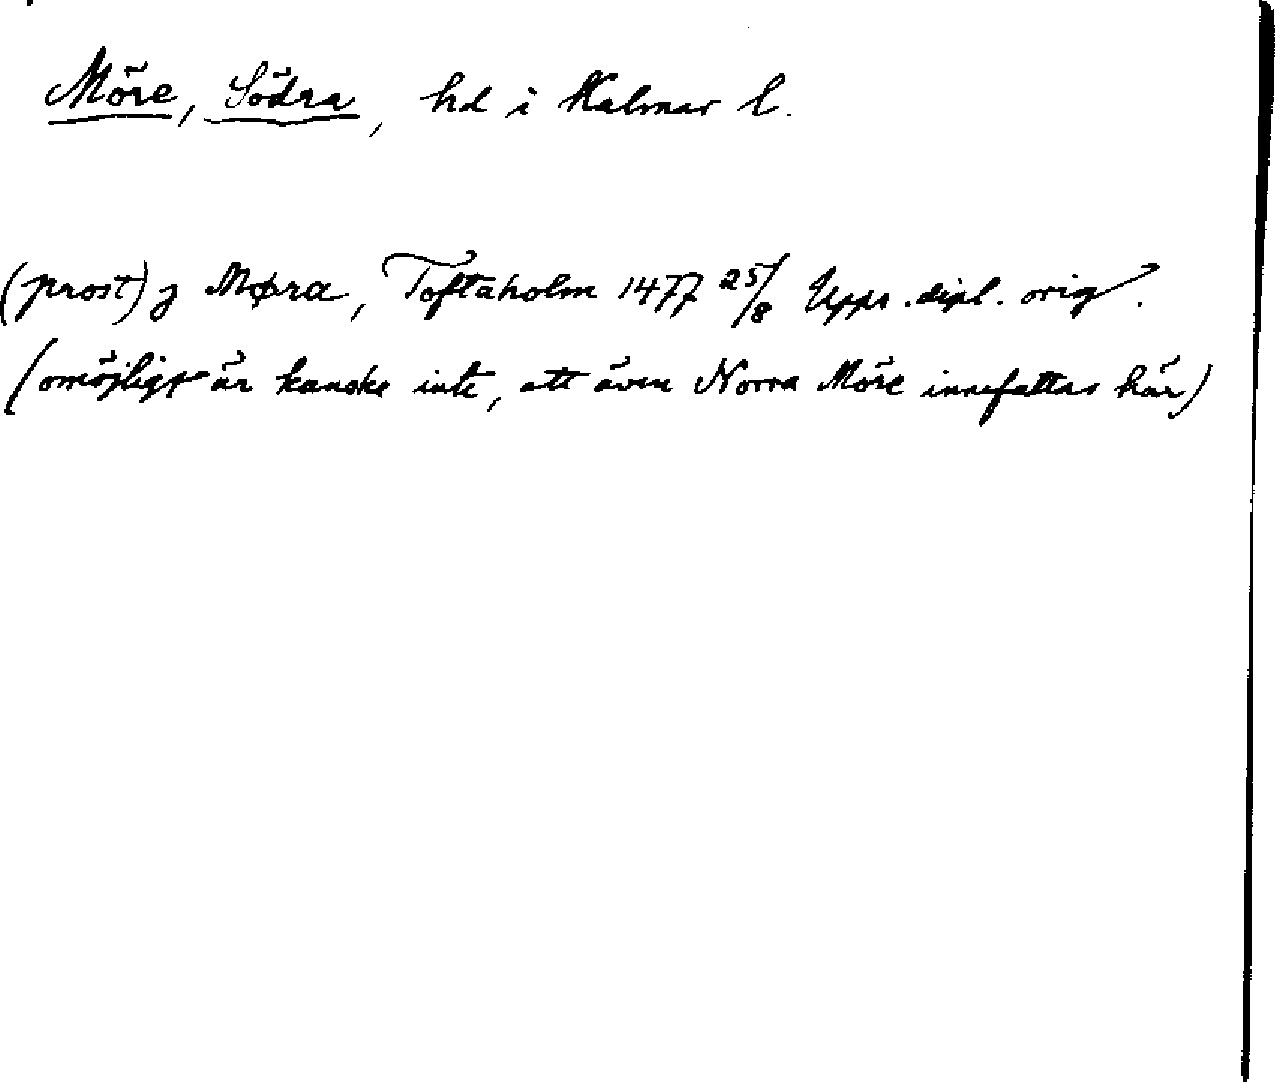 Möre, Södra, hd i Kalmar l.
(prost) j Møra, Toftaholm 1477 25/8 Upps. dipl. orig.
(omöjligt är kanske inte, att även Norra Möre innefattas här)